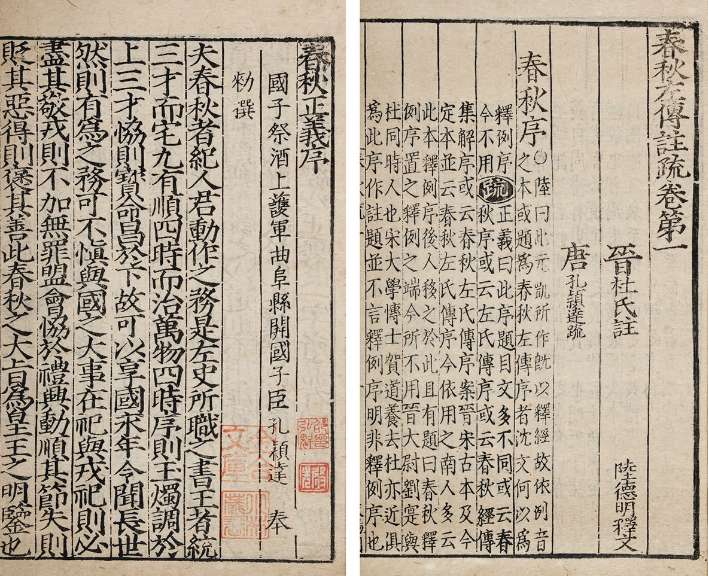 春秋左傳註疏卷第一
晉杜氏註 陸德明釋文
唐孔穎達疏
春秋序○陸曰此元凱所作旣以釋經故依例音
之本或題爲春秋左傳序者沈文何以爲
釋例序疏正義曰此序題目文多不同或云春
今不用秋序或云左氏傳序或云春秋經傳
集解序或云春秋左氏傳序案晉宋古本及今
定本並云春秋左氏傳序今依用之南人多云
此本釋例序後人移之於此且有題曰春秋釋
例序置之釋例之端今所不用晉大尉劉寔與
杜同時人也宋大學博士賀道養去杜亦近俱
爲此序作註題並不言釋例序明非釋例序也
春秋正義序
國子祭酒上護軍曲阜縣開國子臣孔穎達奉
勑撰
夫春秋者紀人君動作之務是左史所職之書王者統
三才而宅九有順四時而治萬物四時序則玉燭調於
上三才協則寳命昌於下故可以享國永年令聞長世
然則有爲之務可不愼與國之大事在祀與戎祀則必
盡其敬戎則不加無罪盟會協於禮興動順其節失則
貶其惡得則襃其善此春秋之大旨爲皇王之明鑒也